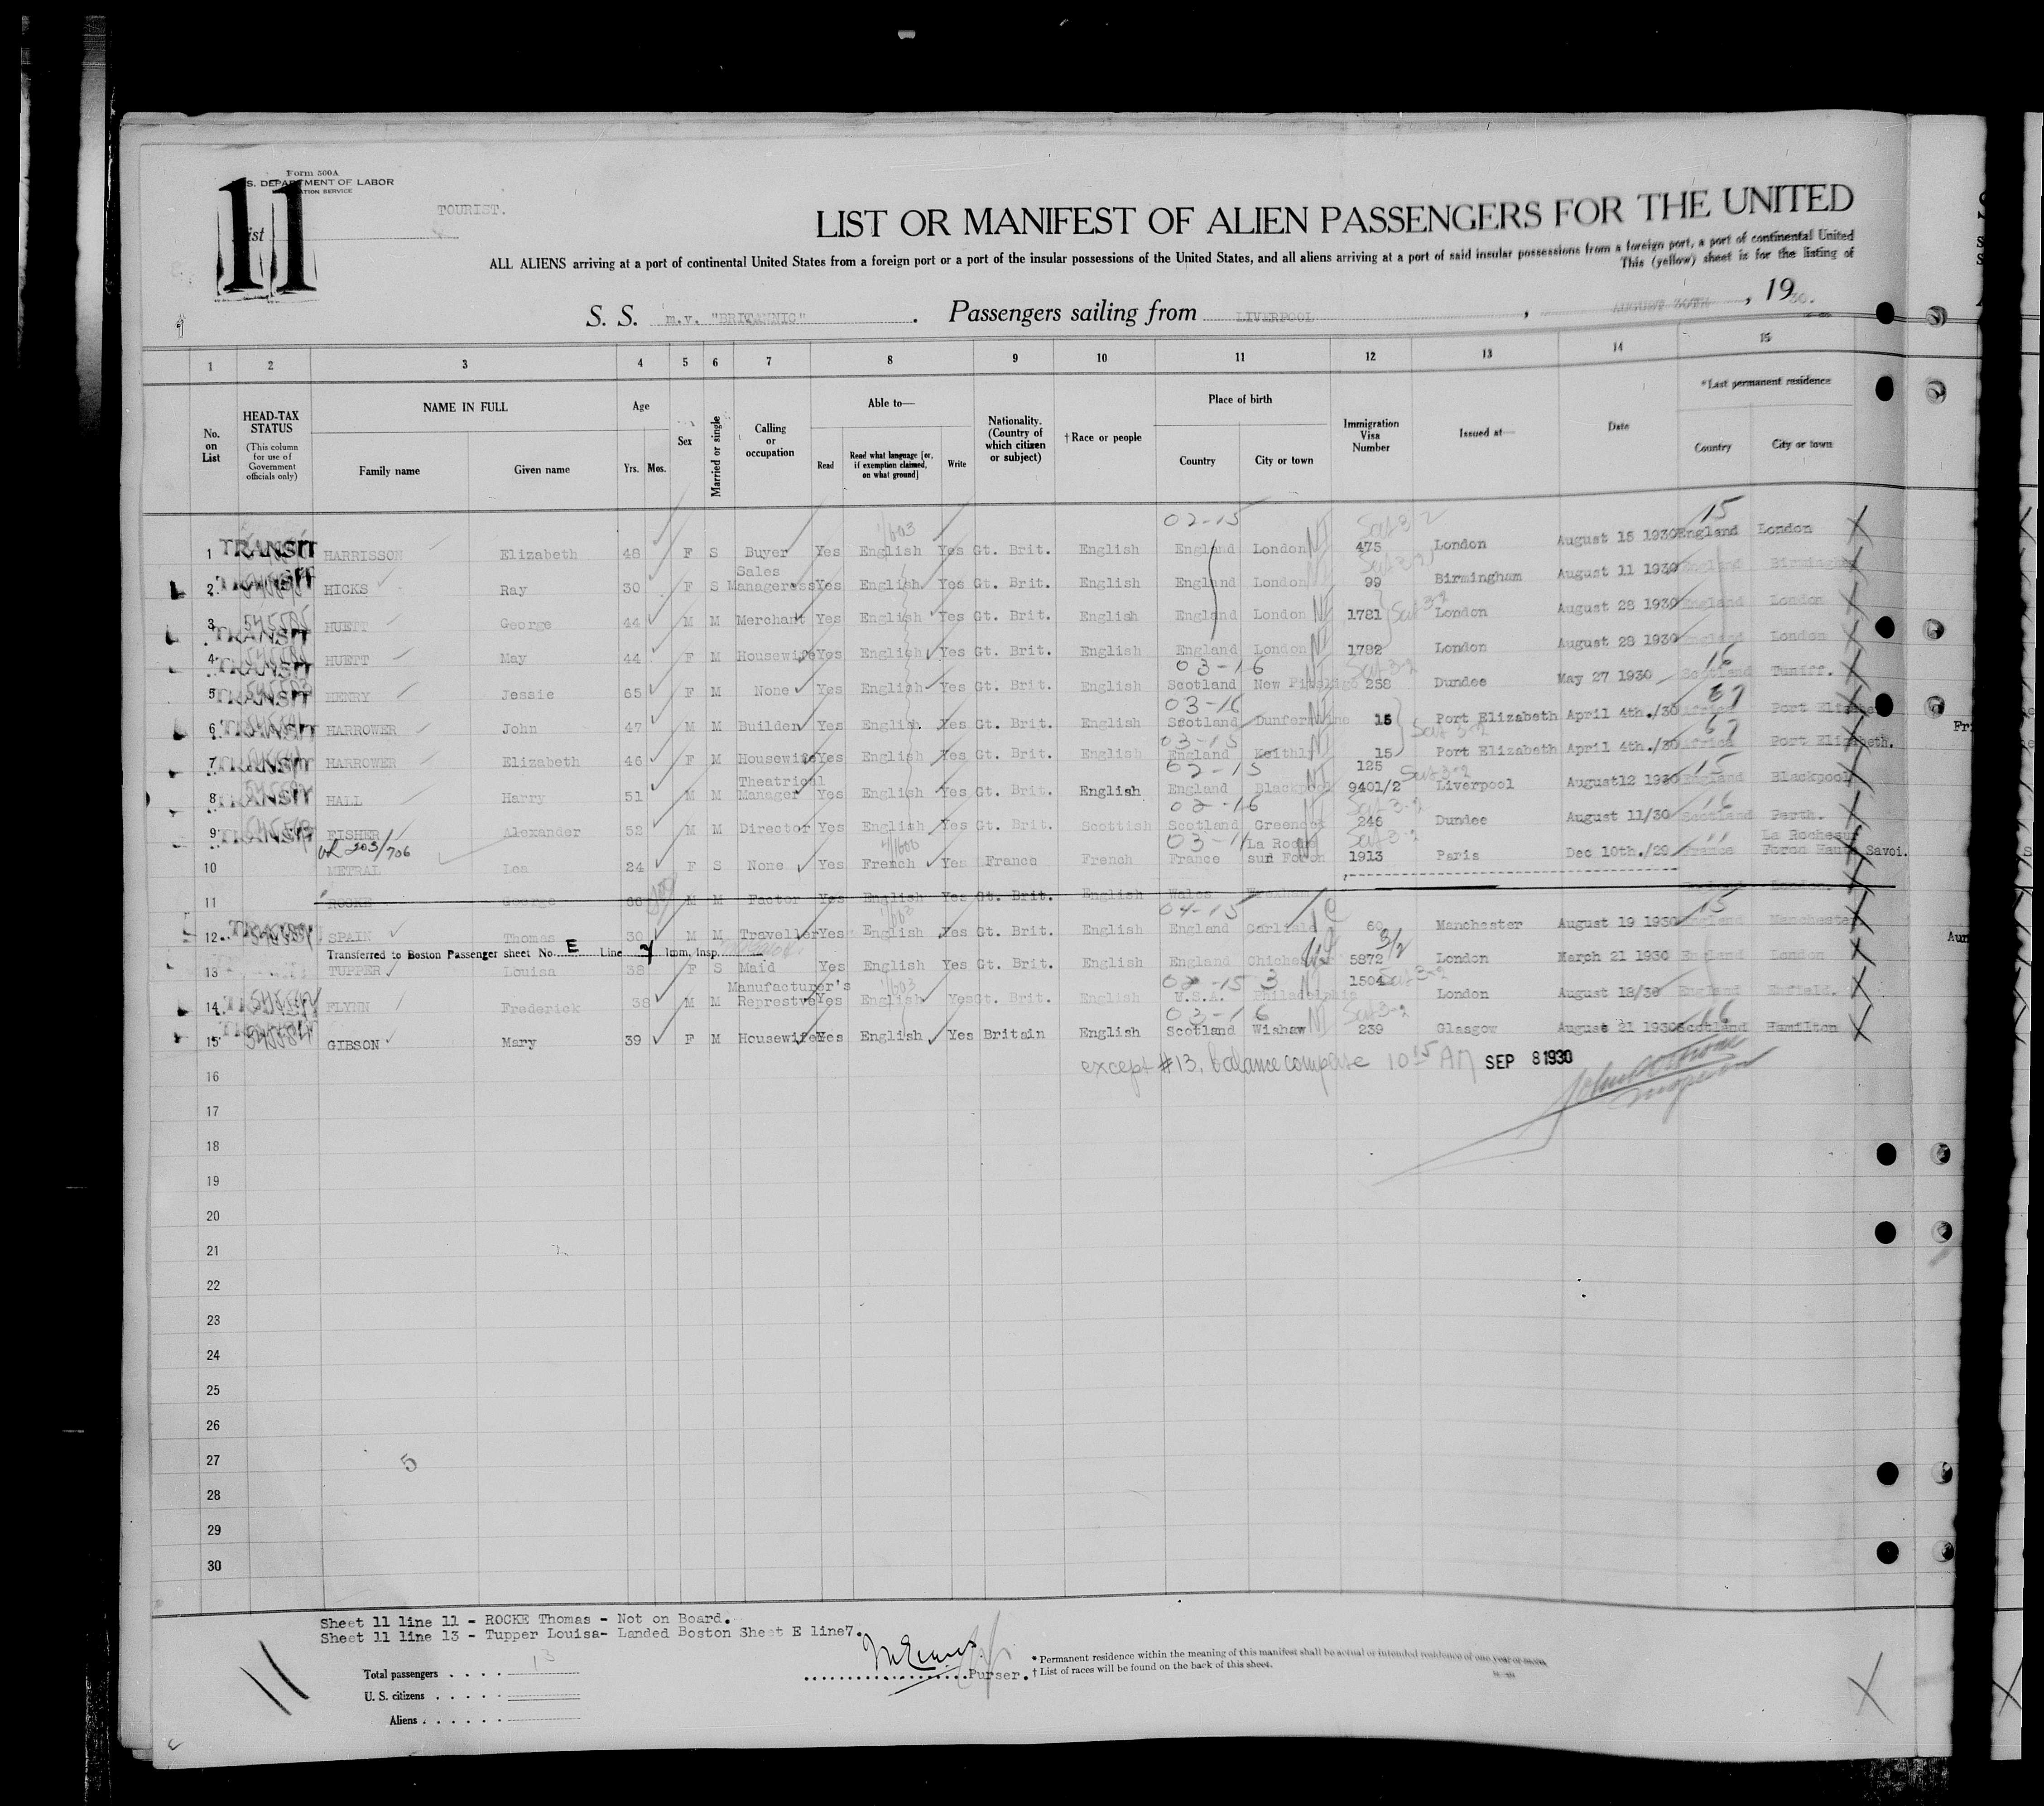 Form 500A
S. DEPARTMENT OF LABOR
ATION SERVICE
11
TOURIST.
List
LIST OR MANIFEST OF ALIEN PASSENGERS FOR THE UNITED
ALL ALIENS arriving at a port of continental United States from a foreign port or a port of the insular possessions of the United States, and all aliens arriving at a port of said insular possessions from a foreign port, a port of continental United
This (yellow) sheet is for the listing of
S. S. m.v. "BRITANNIC". Passengers sailing from LIVERPOOL, AUGUST 30TH, 1930.
1 2 3 4 5 6 7 8 9 10 11 12 13 14 15
No. on List
HEAD-TAX STATUS (This column for use of Government officials only)
NAME IN FULL Family name Given name
Age Yrs. Mos.
Sex
Married or single
Calling or occupation
Able to— Read Read what language [or, if exemption claimed, on what ground] Write
Nationality. (Country of which citizen or subject)
† Race or people
Place of birth Country City or town
Immigration Visa Number
Issued at—
Date
*Last permanent residence Country City or town
02-15 15
1 TRANSIT HARRISSON Elizabeth 48 F S Buyer Yes English Yes Gt. Brit. English England London NI 475 London August 15 1930 England London
2 TRANSIT HICKS Ray 30 F S Sales Manageress Yes English Yes Gt. Brit. English England London 99 Birmingham August 11 1930 England Birmingham
3 HUETT George 44 M M Merchant Yes English Yes Gt. Brit. English England London 1781 London August 28 1930 England London
4 TRANSIT HUETT May 44 F M Housewife Yes English Yes Gt. Brit. English England London 1782 London August 28 1930 England London
03-16 16
5 TRANSIT HENRY Jessie 65 F M None Yes English Yes Gt. Brit. English Scotland New Pitsligo 258 Dundee May 27 1930 Scotland Tuniff.
03-16
6 TRANSIT HARROWER John 47 M M Builder Yes English Yes Gt. Brit. English Scotland Dunfermline 15 Port Elizabeth April 4th./30 Africa Port Elizabeth
03-15
7 TRANSIT HARROWER Elizabeth 46 F M Housewife Yes English Yes Gt. Brit. English England Keithly 15 Port Elizabeth April 4th./30 Africa Port Elizabeth.
02-15 125 15
8 TRANSIT HALL Harry 51 M M Theatrical Manager Yes English Yes Gt. Brit. English England Blackpool 9401/2 Liverpool August12 1930 England Blackpool
02-16 16
9 TRANSIT FISHER Alexander 52 M M Director Yes English Yes Gt. Brit. Scottish Scotland Greenock 246 Dundee August 11/30 Scotland Perth.
203/706 03-11
10 METRAL Lea 24 F S None Yes French Yes France French France La Roche sur Foron 1913 Paris Dec 10th./29 France La Rochesur Foron Haute Savoi.
11 ROCKE George 66 M M Factor Yes English Yes Gt. Brit. English Wales Wrexham London.
04-15 15
12 SPAIN Thomas 30 M M Traveller Yes English Yes Gt. Brit. English England Carlisle 60 Manchester August 19 1930 England Manchester
Transferred to Boston Passenger sheet No. E Line 7 Imm. Insp. 3/2
13 TUPPER Louisa 38 F S Maid Yes English Yes Gt. Brit. English England Chichester 5872 London March 21 1930 England London
02-15 3
14 FLYNN Frederick 38 M M Manufacturer's Represtve Yes English Yes Gt. Brit. English U.S.A. Philadelphia 1504 London August 18/30 England Enfield.
03-16 16
15 GIBSON Mary 39 F M Housewife Yes English Yes Britain English Scotland Wishaw 239 Glasgow August 21 1930 Scotland Hamilton
except #13, balance complete 10 15 AM SEP 8 1930
16
17
18
19
20
21
22
23
24
25
26
27
5
28
29
30
Sheet 11 line 11 - ROCKE Thomas - Not on Board.
Sheet 11 line 13 - Tupper Louisa- Landed Boston Sheet E line7.
11
Total passengers . . . . 13
U. S. citizens . . . . .
Aliens . . . . . .
Purser.
* Permanent residence within the meaning of this manifest shall be actual or intended residence of one year or more.
† List of races will be found on the back of this sheet.